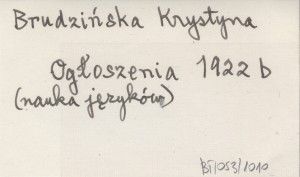 Brudzińska Krystyna
Ogłoszenia 1922 b
(nauka języków)
BT/053/1010